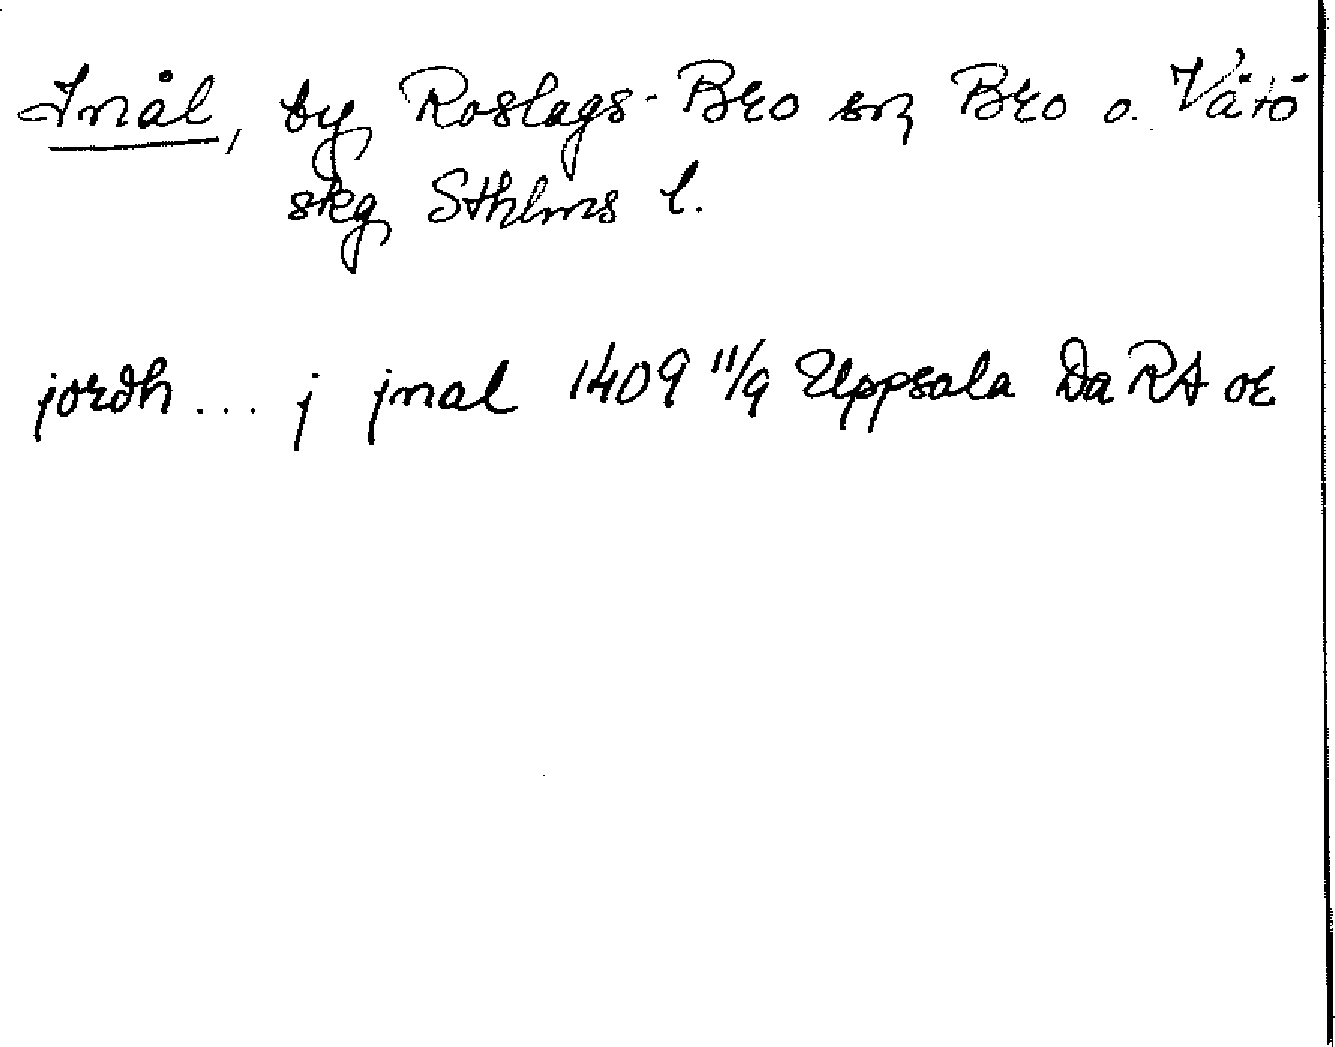 Inål, by Roslags-Bro sn Bro o. Vätö
skg Sthlms l.
jordh ... j jnal 1409 11/9 Uppsala Da RA or